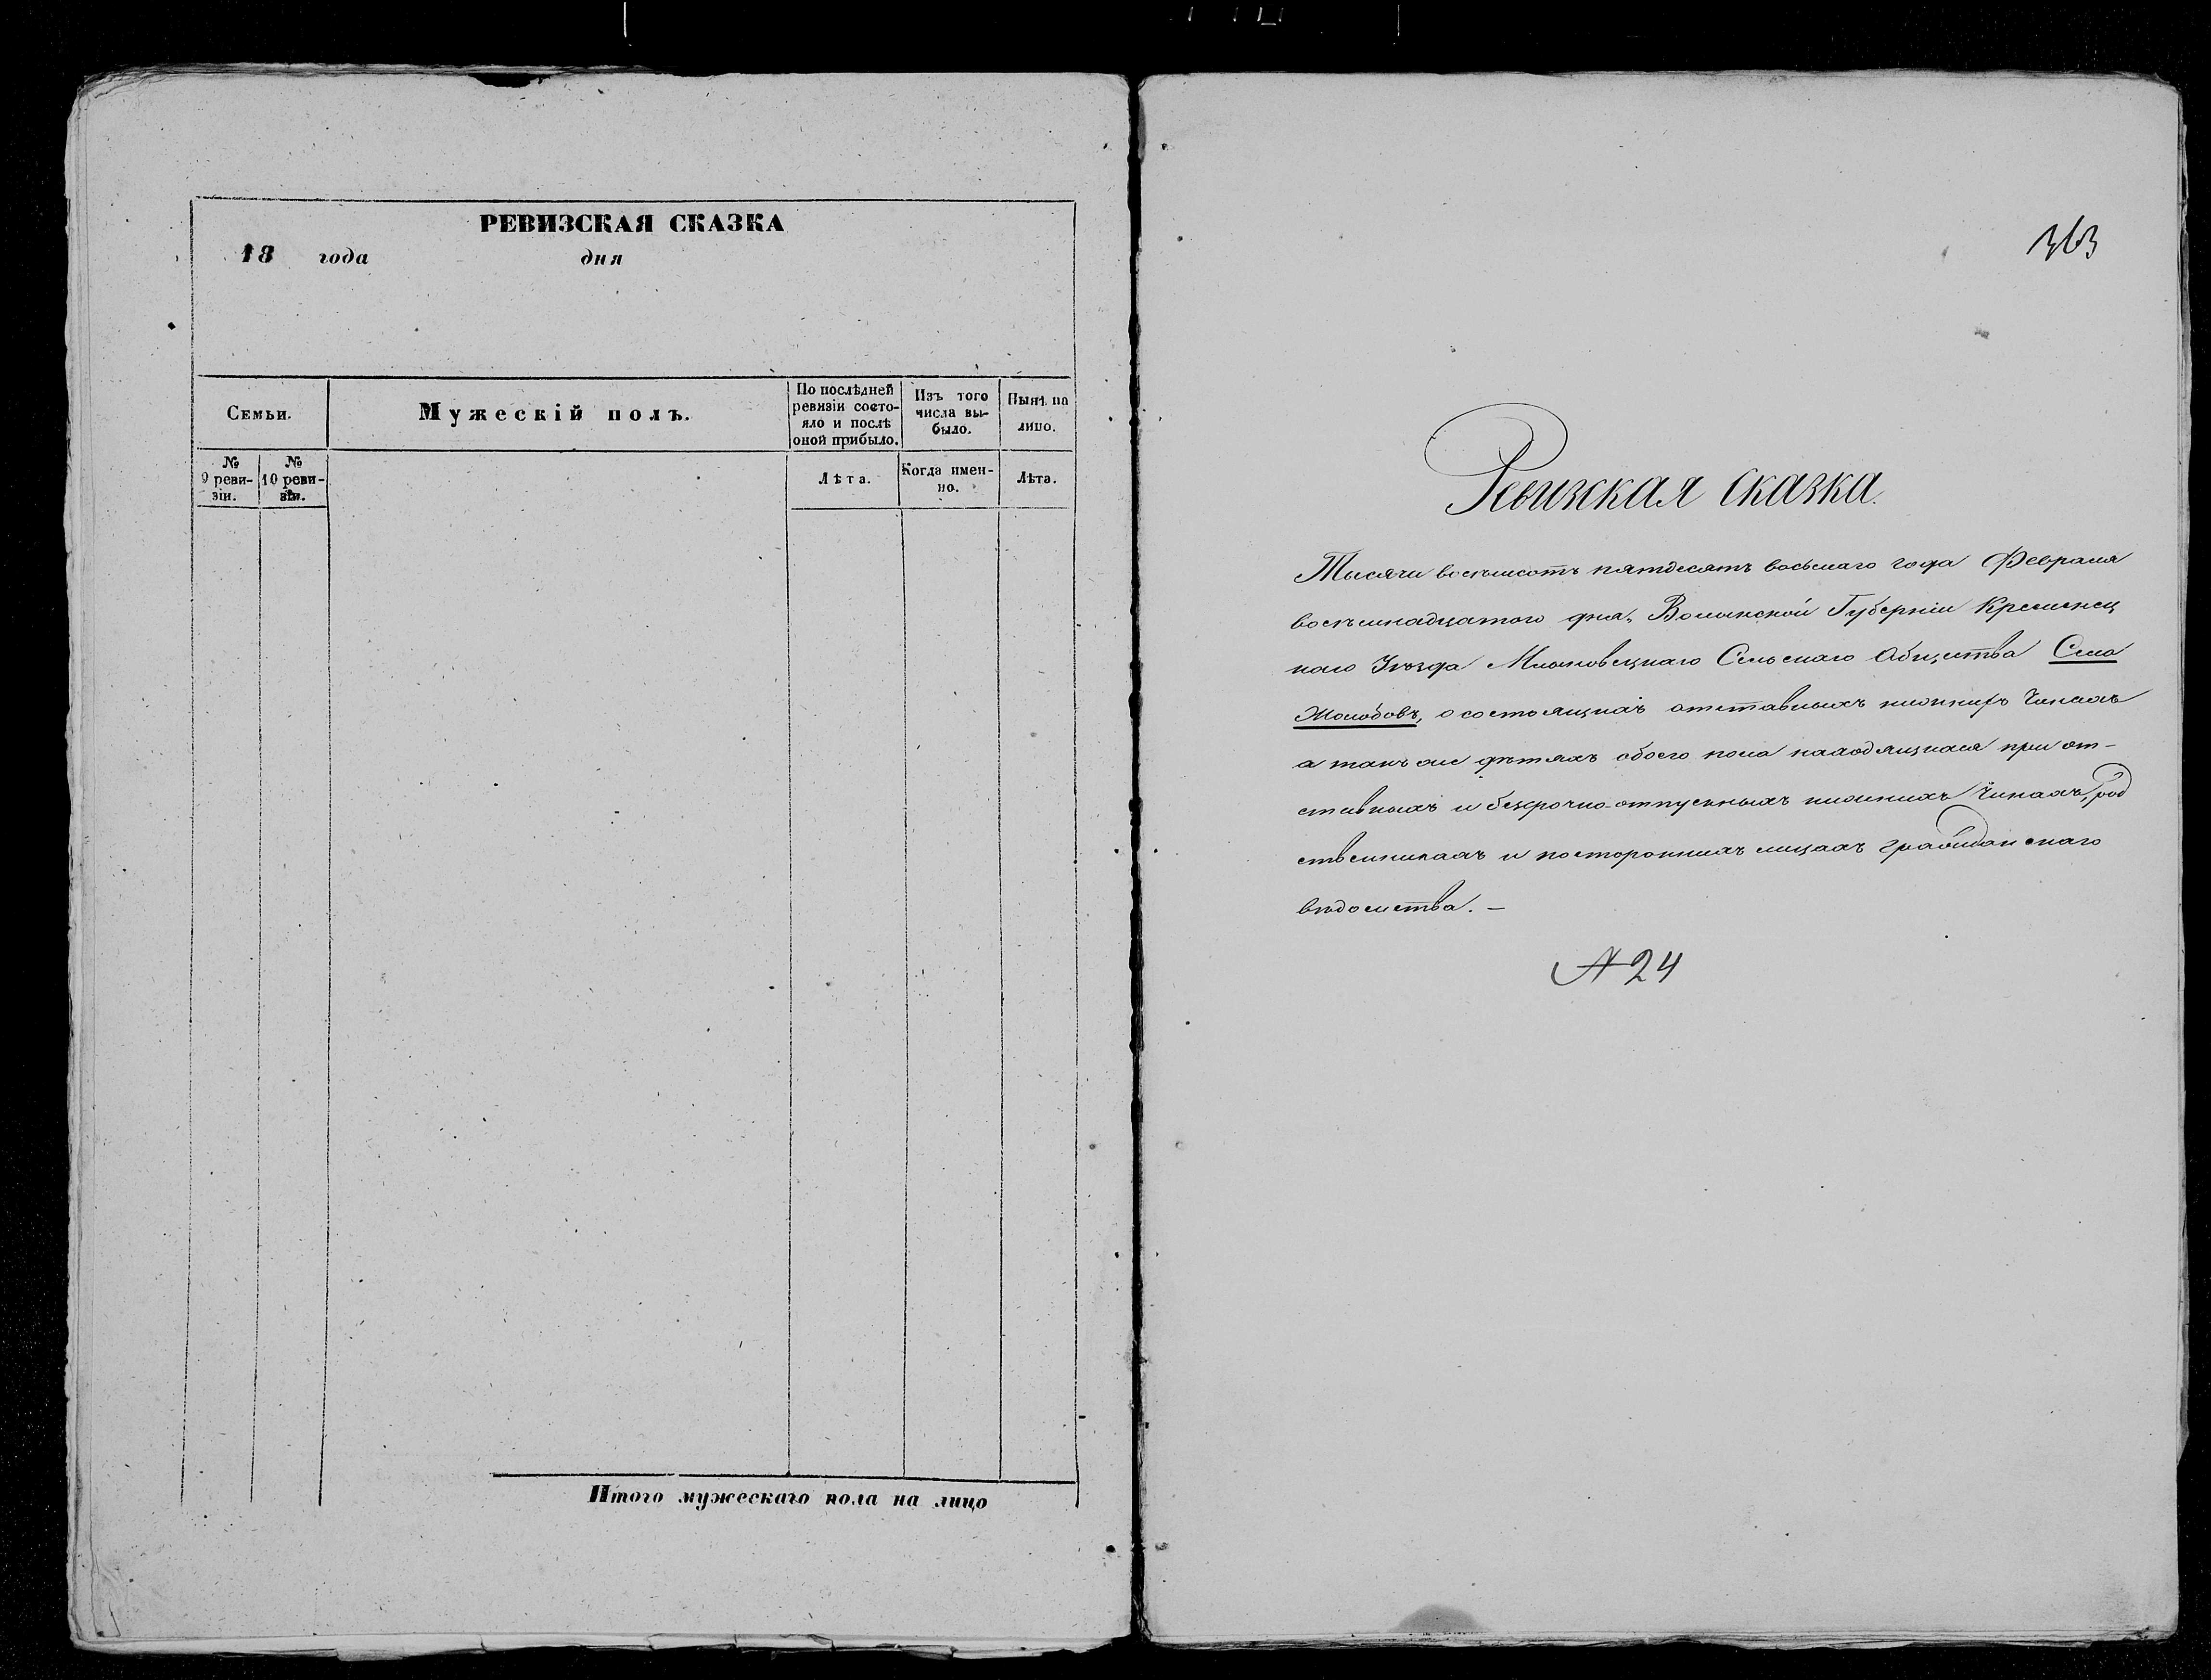 РЕВИЗСКАЯ СКАЗКА
18 года дня
Семьи.
Мужескій полъ.
По послѣдней ревизіи состо-
яло и послѣ
оной прибыло.
Изъ того
числа вы-
было.
Нынѣ на
лицо.
№
9 реви-
зіи.
№
10 реви-
зіи.
Лѣта.
Когда имен-
но.
Лѣта.
Итого мужескаго пола на лицо
363
Ревизская сказка.
Тысяча восемьсотъ пятдесятъ восьмаго года Февраля
восемьнадцатого дня, Волынской Губерніи Кременец
каго Уѣзда Сельскаго Общества Села
Жолобовъ, о состоящихъ отставныхъ нижнихъ Чинахъ
а также дѣтяхъ обоего пола находящихся при от-
ставныхъ и безсрочно-отпускныхъ нижнихъ Чинахъ, род
ственникахъ и постороннихъ лицахъ гражданскаго
вѣдомства. —
№ 24